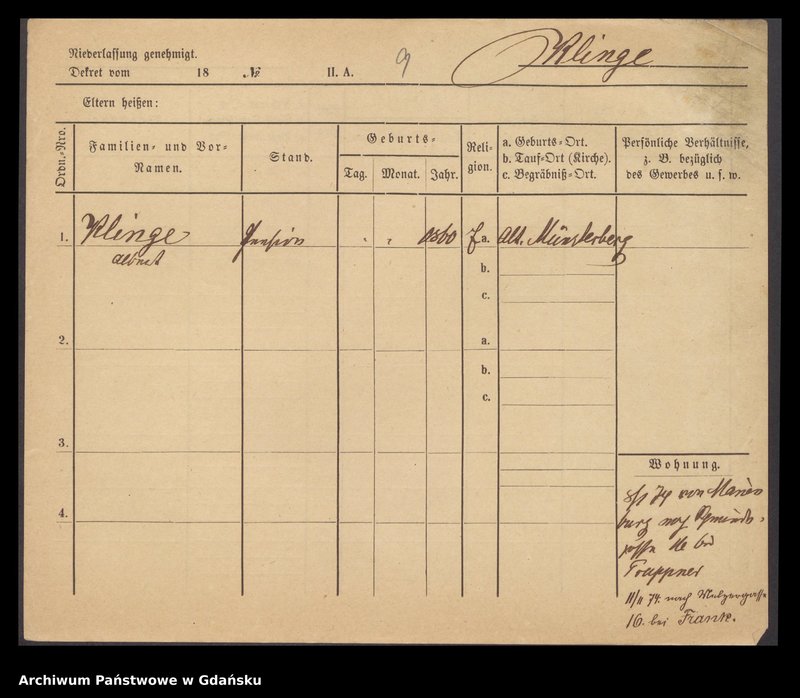 Niederlassung genehmigt.
Dekret vom 18 № II. A. 9 Klinge
Eltern heißen:
Ordn.-Nro.
Familien- und Vor-Namen.
Stand.
Geburts-
Tag. Monat. Jahr.
Reli-gion.
a. Geburts-Ort.
b. Tauf-Ort (Kirche).
c. Begräbniß-Ort.
Persönliche Verhältnisse,
z. B. bezüglich
des Gewerbes u. s. w.
1. Klinge 1860 a. Alt. Münsterberg
Albert
b.
c.
2. a.
b.
c.
3.
Wohnung.
4.
74 von Marien
burg
bei
Trappner
11/11 74. nach Melzergasse
16. bei Frank.
Archiwum Państwowe w Gdańsku